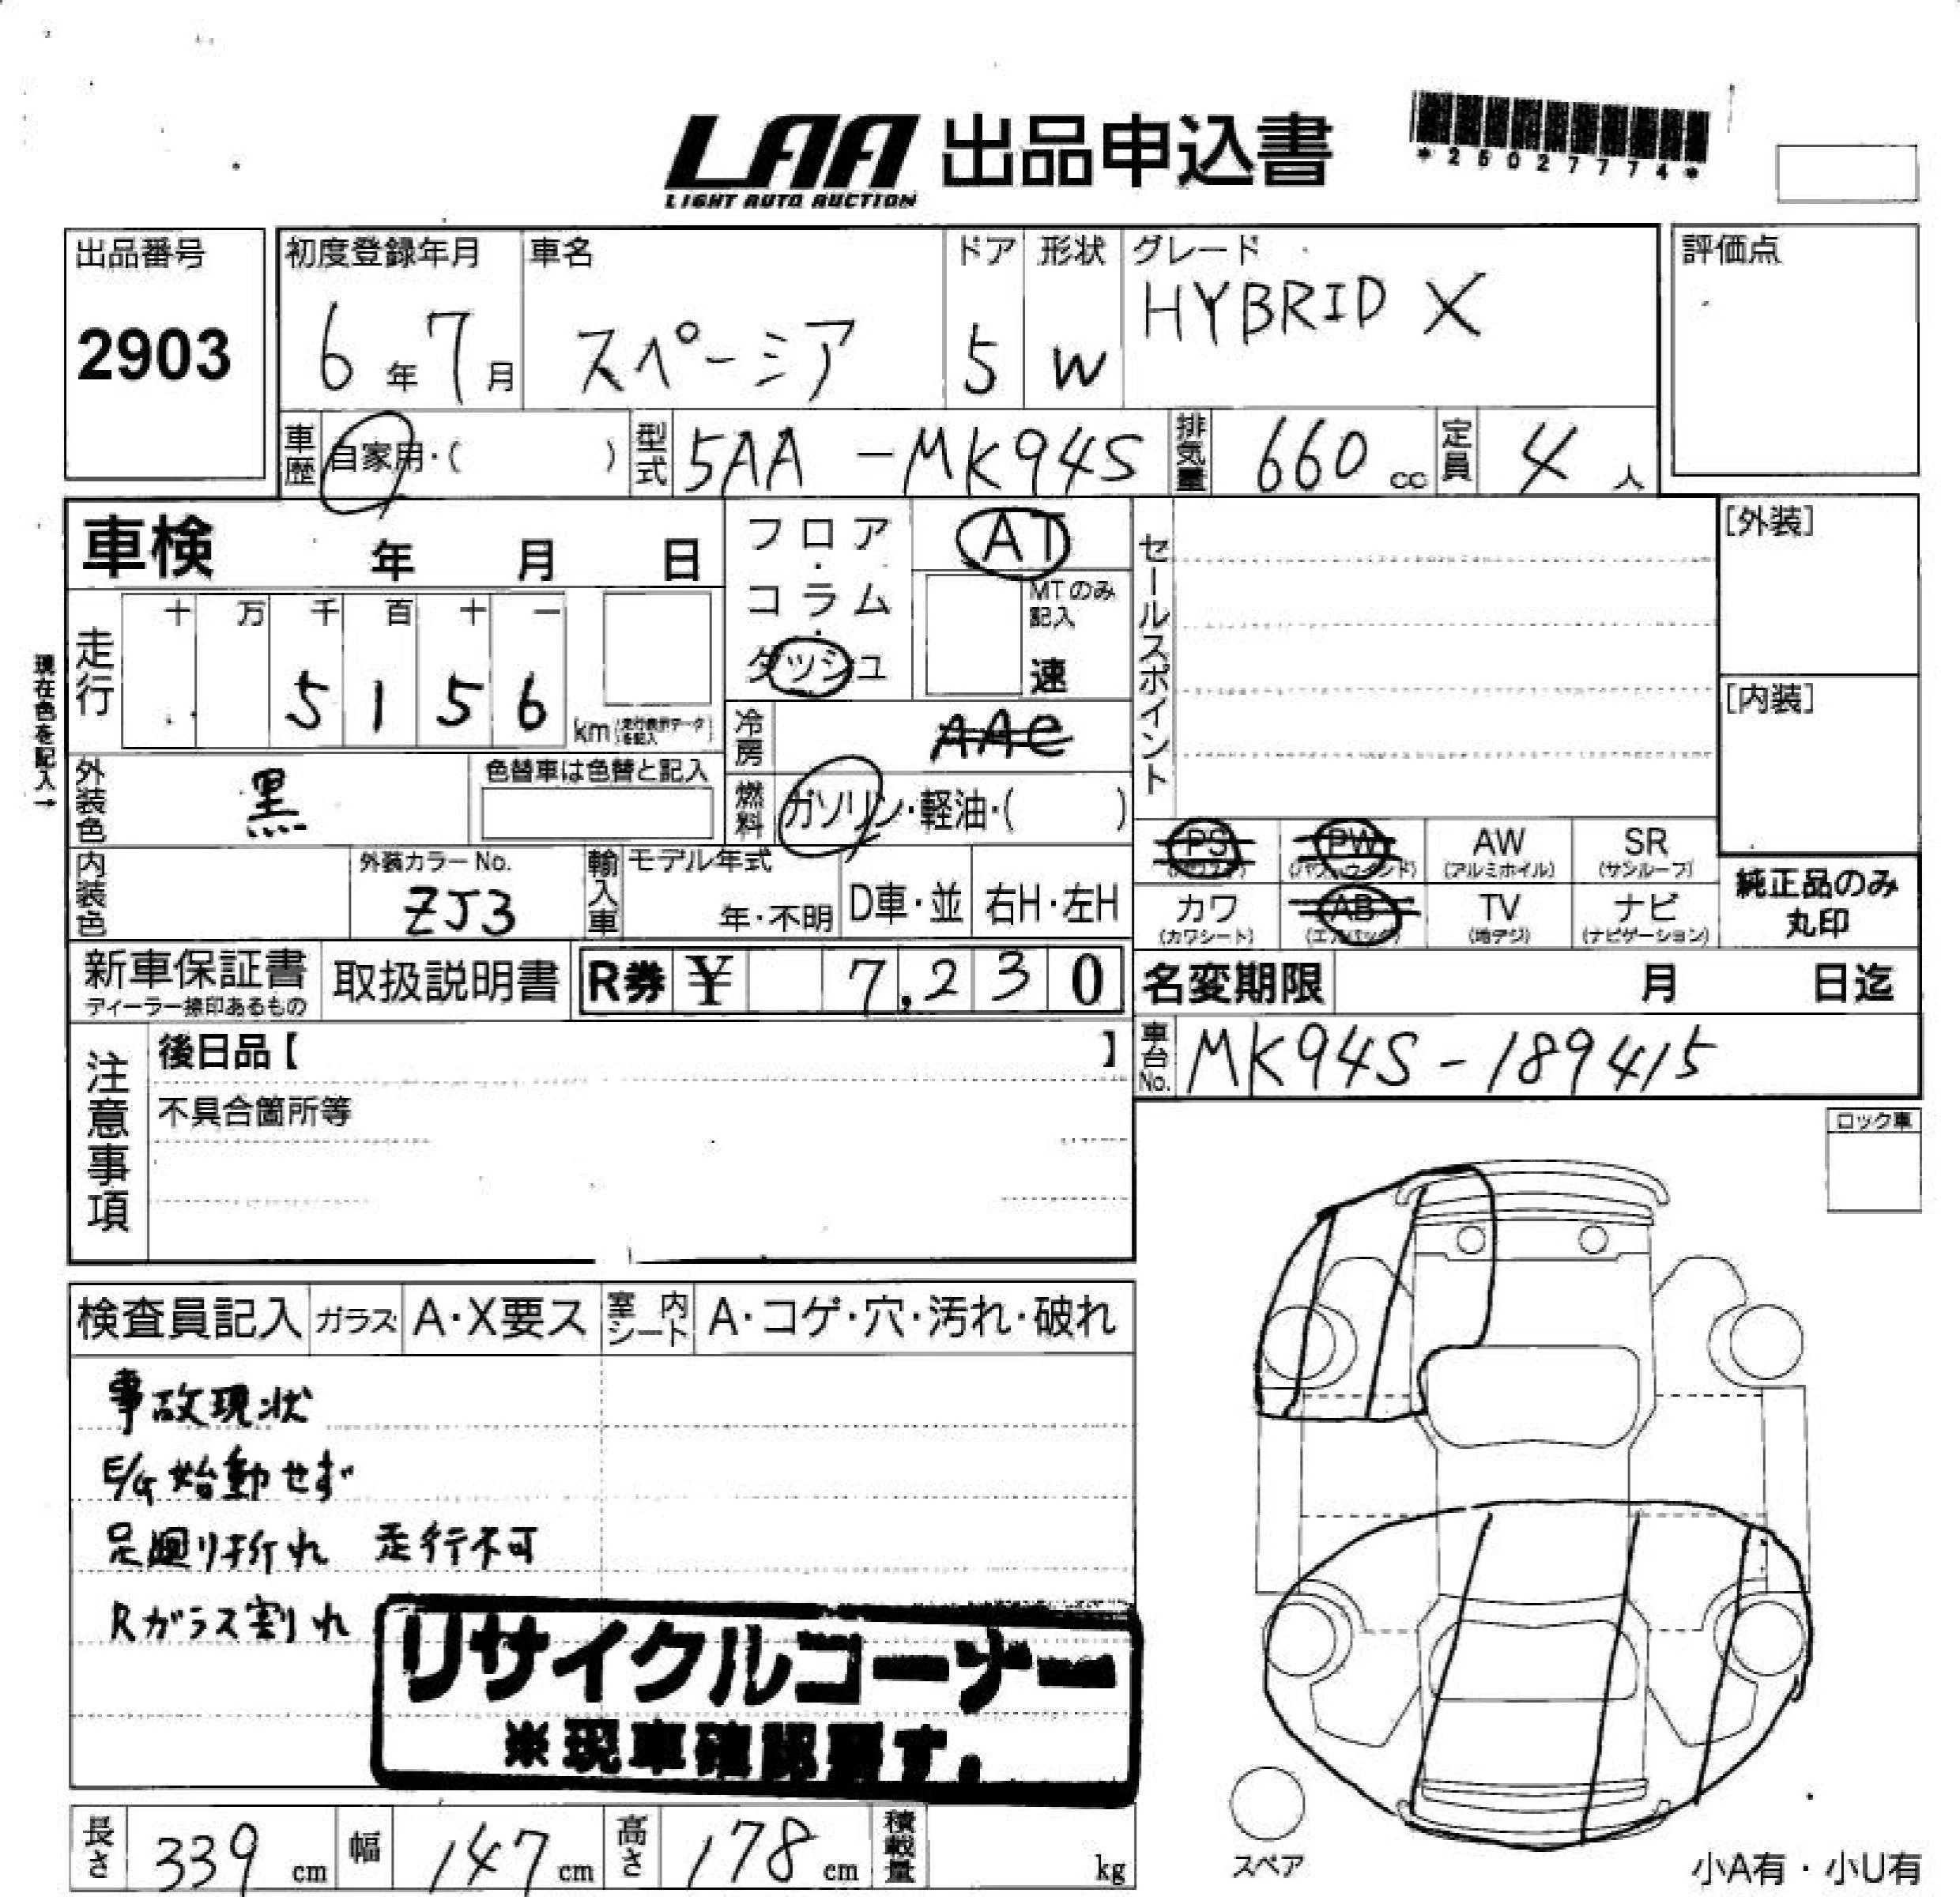 LAA 出品申込書
LIGHT AUTO AUCTION
*25027774*
出品番号
2903
初度登録年月
6年7月
車名
スペーシア
ドア
5
形状
W
グレード
HYBRID X
評価点
車歴
自家用・( )
型式
5AA-MK94S
排気量
660 cc
定員
4人
車検 年 月 日
フロア・コラム・ダッシュ
AT
MTのみ記入
速
セールスポイント
[外装]
[内装]
現在色を記入→
走行
十 万 千 百 十 一
5 1 5 6
km
冷房
AAC
外装色
黒
色替車は色替と記入
燃料
ガソリン・軽油・( )
PS
PW
AW
(アルミホイル)
SR
(サンルーフ)
カワ
(カワシート)
AB
(エアバック)
TV
(地デジ)
ナビ
(ナビゲーション)
純正品のみ
丸印
内装色
外装カラーNo.
ZJ3
輸入車
モデル年式
年・不明
D車・並
右H・左H
新車保証書
ディーラー捺印あるもの
取扱説明書
R券 ¥ 7,230
名変期限 月 日迄
車台No.
MK94S-189415
注意事項
後日品【 】
不具合箇所等
ロック車
検査員記入
ガラス
A・X要ス
室内シート
A・コゲ・穴・汚れ・破れ
事故現状
E/G始動せず
足廻り折れ 走行不可
Rガラス割れ
リサイクルコーナー
※現車確認要す。
長さ
339 cm
幅
147 cm
高さ
178 cm
積載量
kg
スペア
小A有・小U有